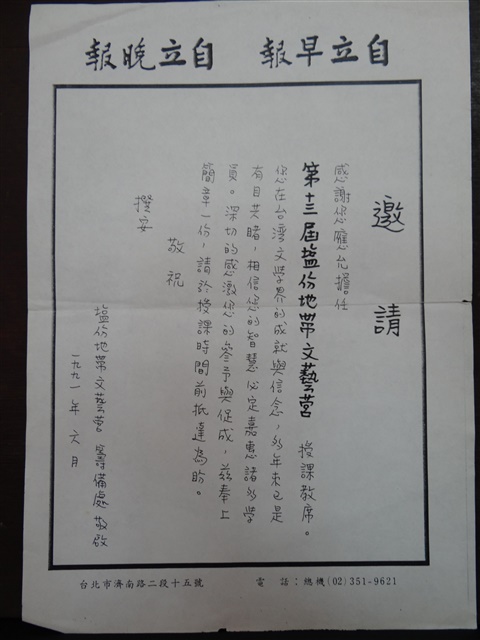 自立早報 自立晚報
邀請
感謝您應允擔任
第十三屆塩份地帶文藝營 授課教席。
您在台湾文學界的成就與信念，多年來已是
有目共睹，相信您的智慧必定嘉惠諸多學
員。深切的感激您的參予與促成，茲奉上
簡章一份，請於授課時間前抵達為盼。
敬祝
撰安
塩份地帶文藝營 籌備處 敬啟
一九九一年六月
台北市濟南路二段十五號 電話：總機(02)351-9621